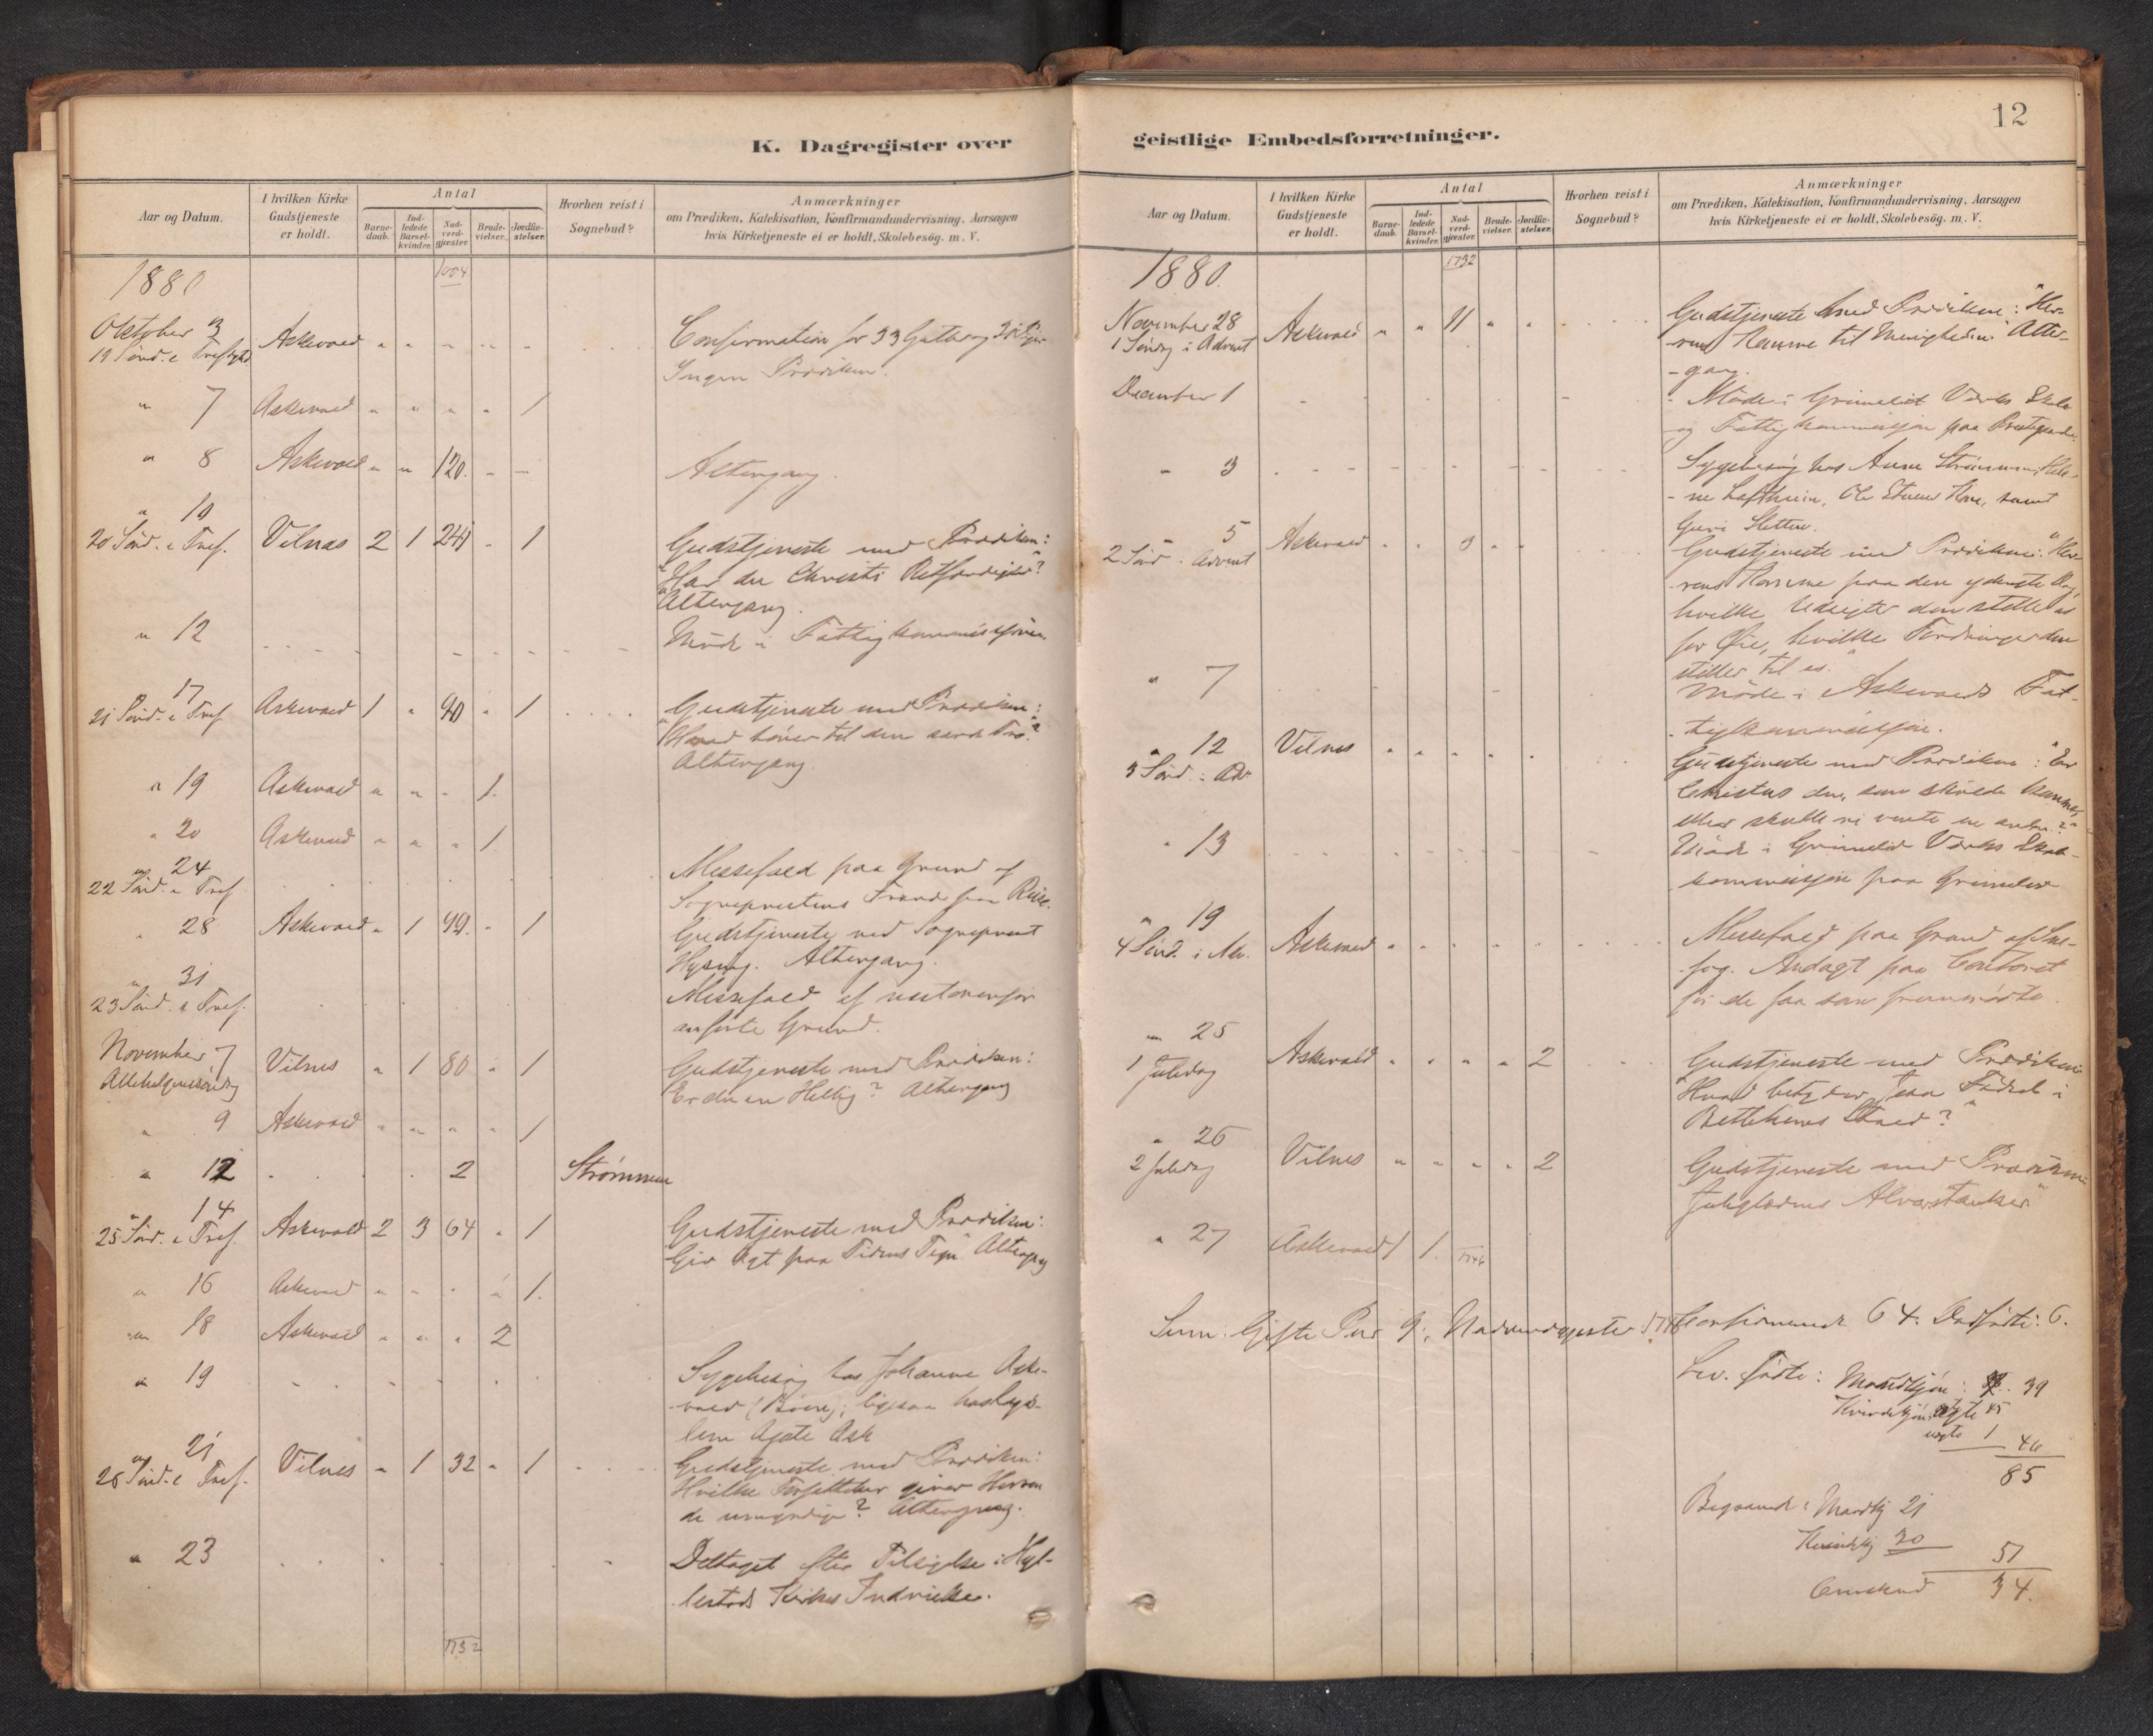 12
K. Dagregister over
geistlige Embedsforretninger.
Aar og Datum.
I hvilken Kirke Gudstjeneste er holdt.
Antal
Barne-daab.
Ind-ledede Barsel-kvinder.
Nad-verd-gjæster.
Brude-vielser.
Jordfæ-stelser.
Hvorhen reist i Sognebud?
Anmærkninger
om Prædiken, Katekisation, Konfirmandundervisning, Aarsagen
hvis Kirketjeneste ei er holdt, Skolebesøg. m. V.
1880
Oktober 3 Askevold " " " " " Confirmation for 33 Gutter og Piger
19 Sønd. e Trefoligh. Ingen Prædiken.
" 7 Askevold " " " " 1
" 8 Askevold " " 120. - - Altergang.
" 10
20 Sønd. e Tref. Vilnæs 2 1 - 1 Gudstjeneste med Prædiken:
"Har du Christi Retfærdighed?"
Altergang.
" 12 Møde i Fattigkommissionen
17
21 Sønd. e Tref Askevold 1 " 90 " 1 Gudstjeneste med Prædiken:
"Hvad hører til den sande Tro?"
Altergang.
" 19 Askevold " " - 1.
" 20 Askevold " " " 1.
" 24 Messefald paa Grund af
22 Sønd. e Tref Sogneprestens Fravær paa Reise.
" 28 Askevold " 1 99. - 1 Gudstjeneste ved Sogneprest
Altergang.
" 31 Messefald af nestovenfor
23 Sønd. e Tref. anførte Grund.
November 7 Vilnes " 1 80 " 1 Gudstjeneste med Prædiken:
Allehelgenssøndag Er du en Hellig? Altergang
" 9 Askevold " " " " 1
" 12 2 Strømmen
" 14
25 Sønd. e Tref. Askevold 2 3 64 " 1 Gudstjeneste med Prædiken:
Giv Agt paa Tidens Tegn". Altergang
" 16 Askevold " " " " 1.
" 18 Askevold " " " 2
" 19 Sygebesøg hos Johanne Aske-
-vold ligesaa hos
Agate Ask
" 21
26 Sønd. e Tref. Vilnes " 1 32 " 1 Gudstjeneste med Prædiken:
Hvilke giver Herren
de umyndige? Altergang.
" 23 Deltaget efter Tilsigelse i Hyl-
lestads Kirkes Indvielse.
1732
Aar og Datum.
I hvilken Kirke Gudstjeneste er holdt.
Antal
Barne-daab.
Ind-ledede Barsel-kvinder.
Nad-verd-gjæster.
Brude-vielser.
Jordfæ-stelser.
Hvorhen reist i Sognebud?
Anmærkninger
om Prædiken, Katekisation, Konfirmandundervisning, Aarsagen
hvis Kirketjeneste ei er holdt, Skolebesøg. m. V.
1732
1880.
November 28 Askevold " " 11 " " Gudstjeneste med Prædiken: "Her-
1 Søndag i Advent rens Komme til Menigheden" Alter-
-gang.
December 1 Møde i Grimelid Værks Skole
og Fattigkommission paa Prestegaarden.
" 3 Sygebesøg hos Anne Strømmen,
samt
Guri Sletten.
" 5 Askevold " " 3 " " Gudstjeneste med Prædiken: "Her-
2 Sønd. i Advent rens Komme paa den yderste Dag,
hvilke Udsigter den stiller os
for Øie, hvilke Fordringer den
stiller til os."
" 7 Møde i Askevolds Fat-
tigkommission.
" 12 Vilnes " " " " " Gudstjeneste med Prædiken: "Er
3 Sønd. i Adv Christus den, som skulde komme,
eller skulle vi vente en anden?"
" 13 Møde i Grimelid Værks Skole-
kommission paa Grimelid
" 19
4 Sønd. i Adv. Askevold " " " " " Messefald paa Grund af Sne-
fog. Andagt paa Contoret
for de faa som fremmødte.
" 25
1 Juledag Askevold " " " " 2 Gudstjeneste med Prædiken:
"Hvad betyder Jesu Fødsel i
Bethlehems Stald?"
" 26
2 Juledag Vilnes " " " " 2 Gudstjeneste med Prædiken
Juleglædens Alvorstanker"
" 27 Askevold 1 1. 1746
Sum: Gifte Par 9; Nadverdgjester: 1746 Confirmerede 64. Dødfødte: 6.
Lev. Fødte: Mandkjøn: 39
Kvindekjøn: ægte 45
uægte 1
46
85
Begravede: Mandkj 21
Kvindekj 30
51
Overskud 34.